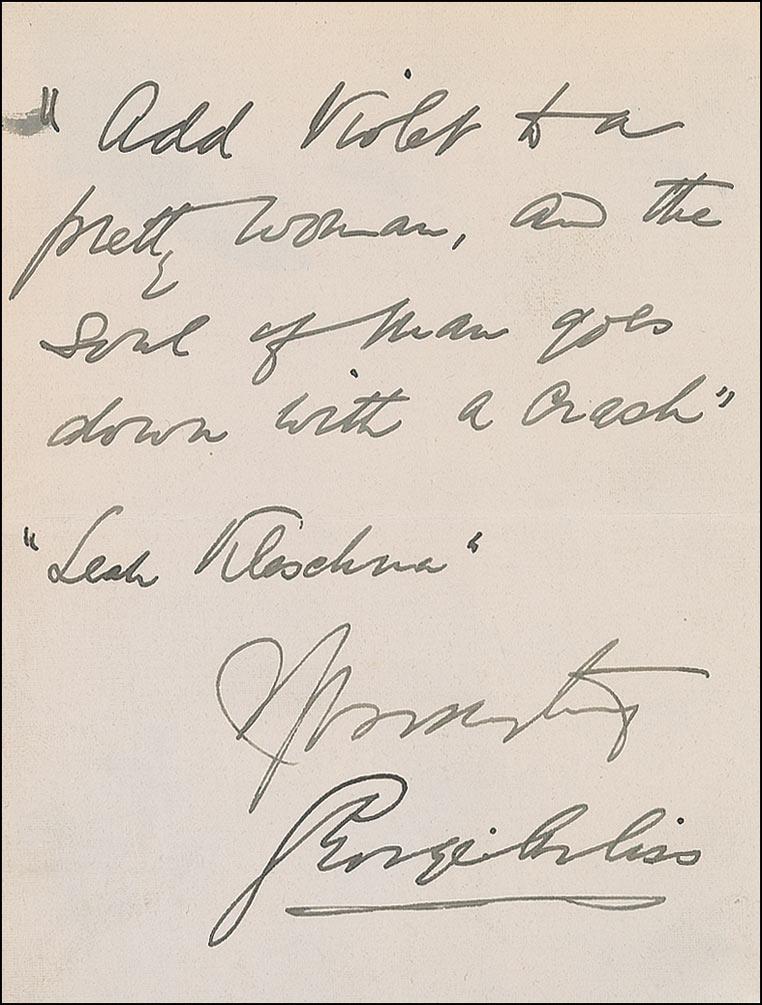 "Add Violet to a
pretty woman, and the
soul of man goes
down with a crash"
"Leah Kleschna"
George Arliss